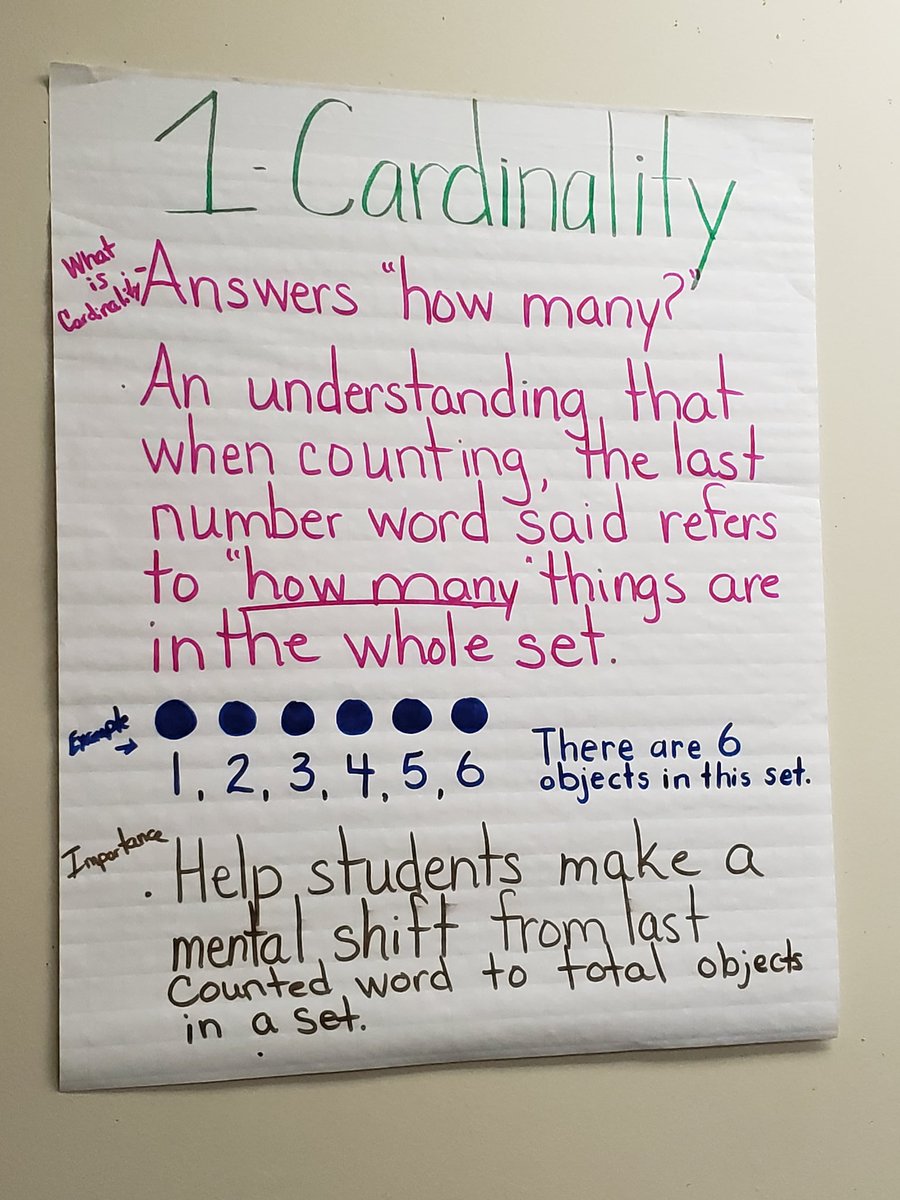 1-Cardinality
What
is
Cardinality?
-Answers "how many?"
An understanding that
when counting, the last
number word said refers
to "how many" things are
in the whole set.
Example
1, 2, 3, 4, 5, 6
There are 6
objects in this set.
Importance
. Help students make a
mental shift from last
Counted word to total objects
in a set.